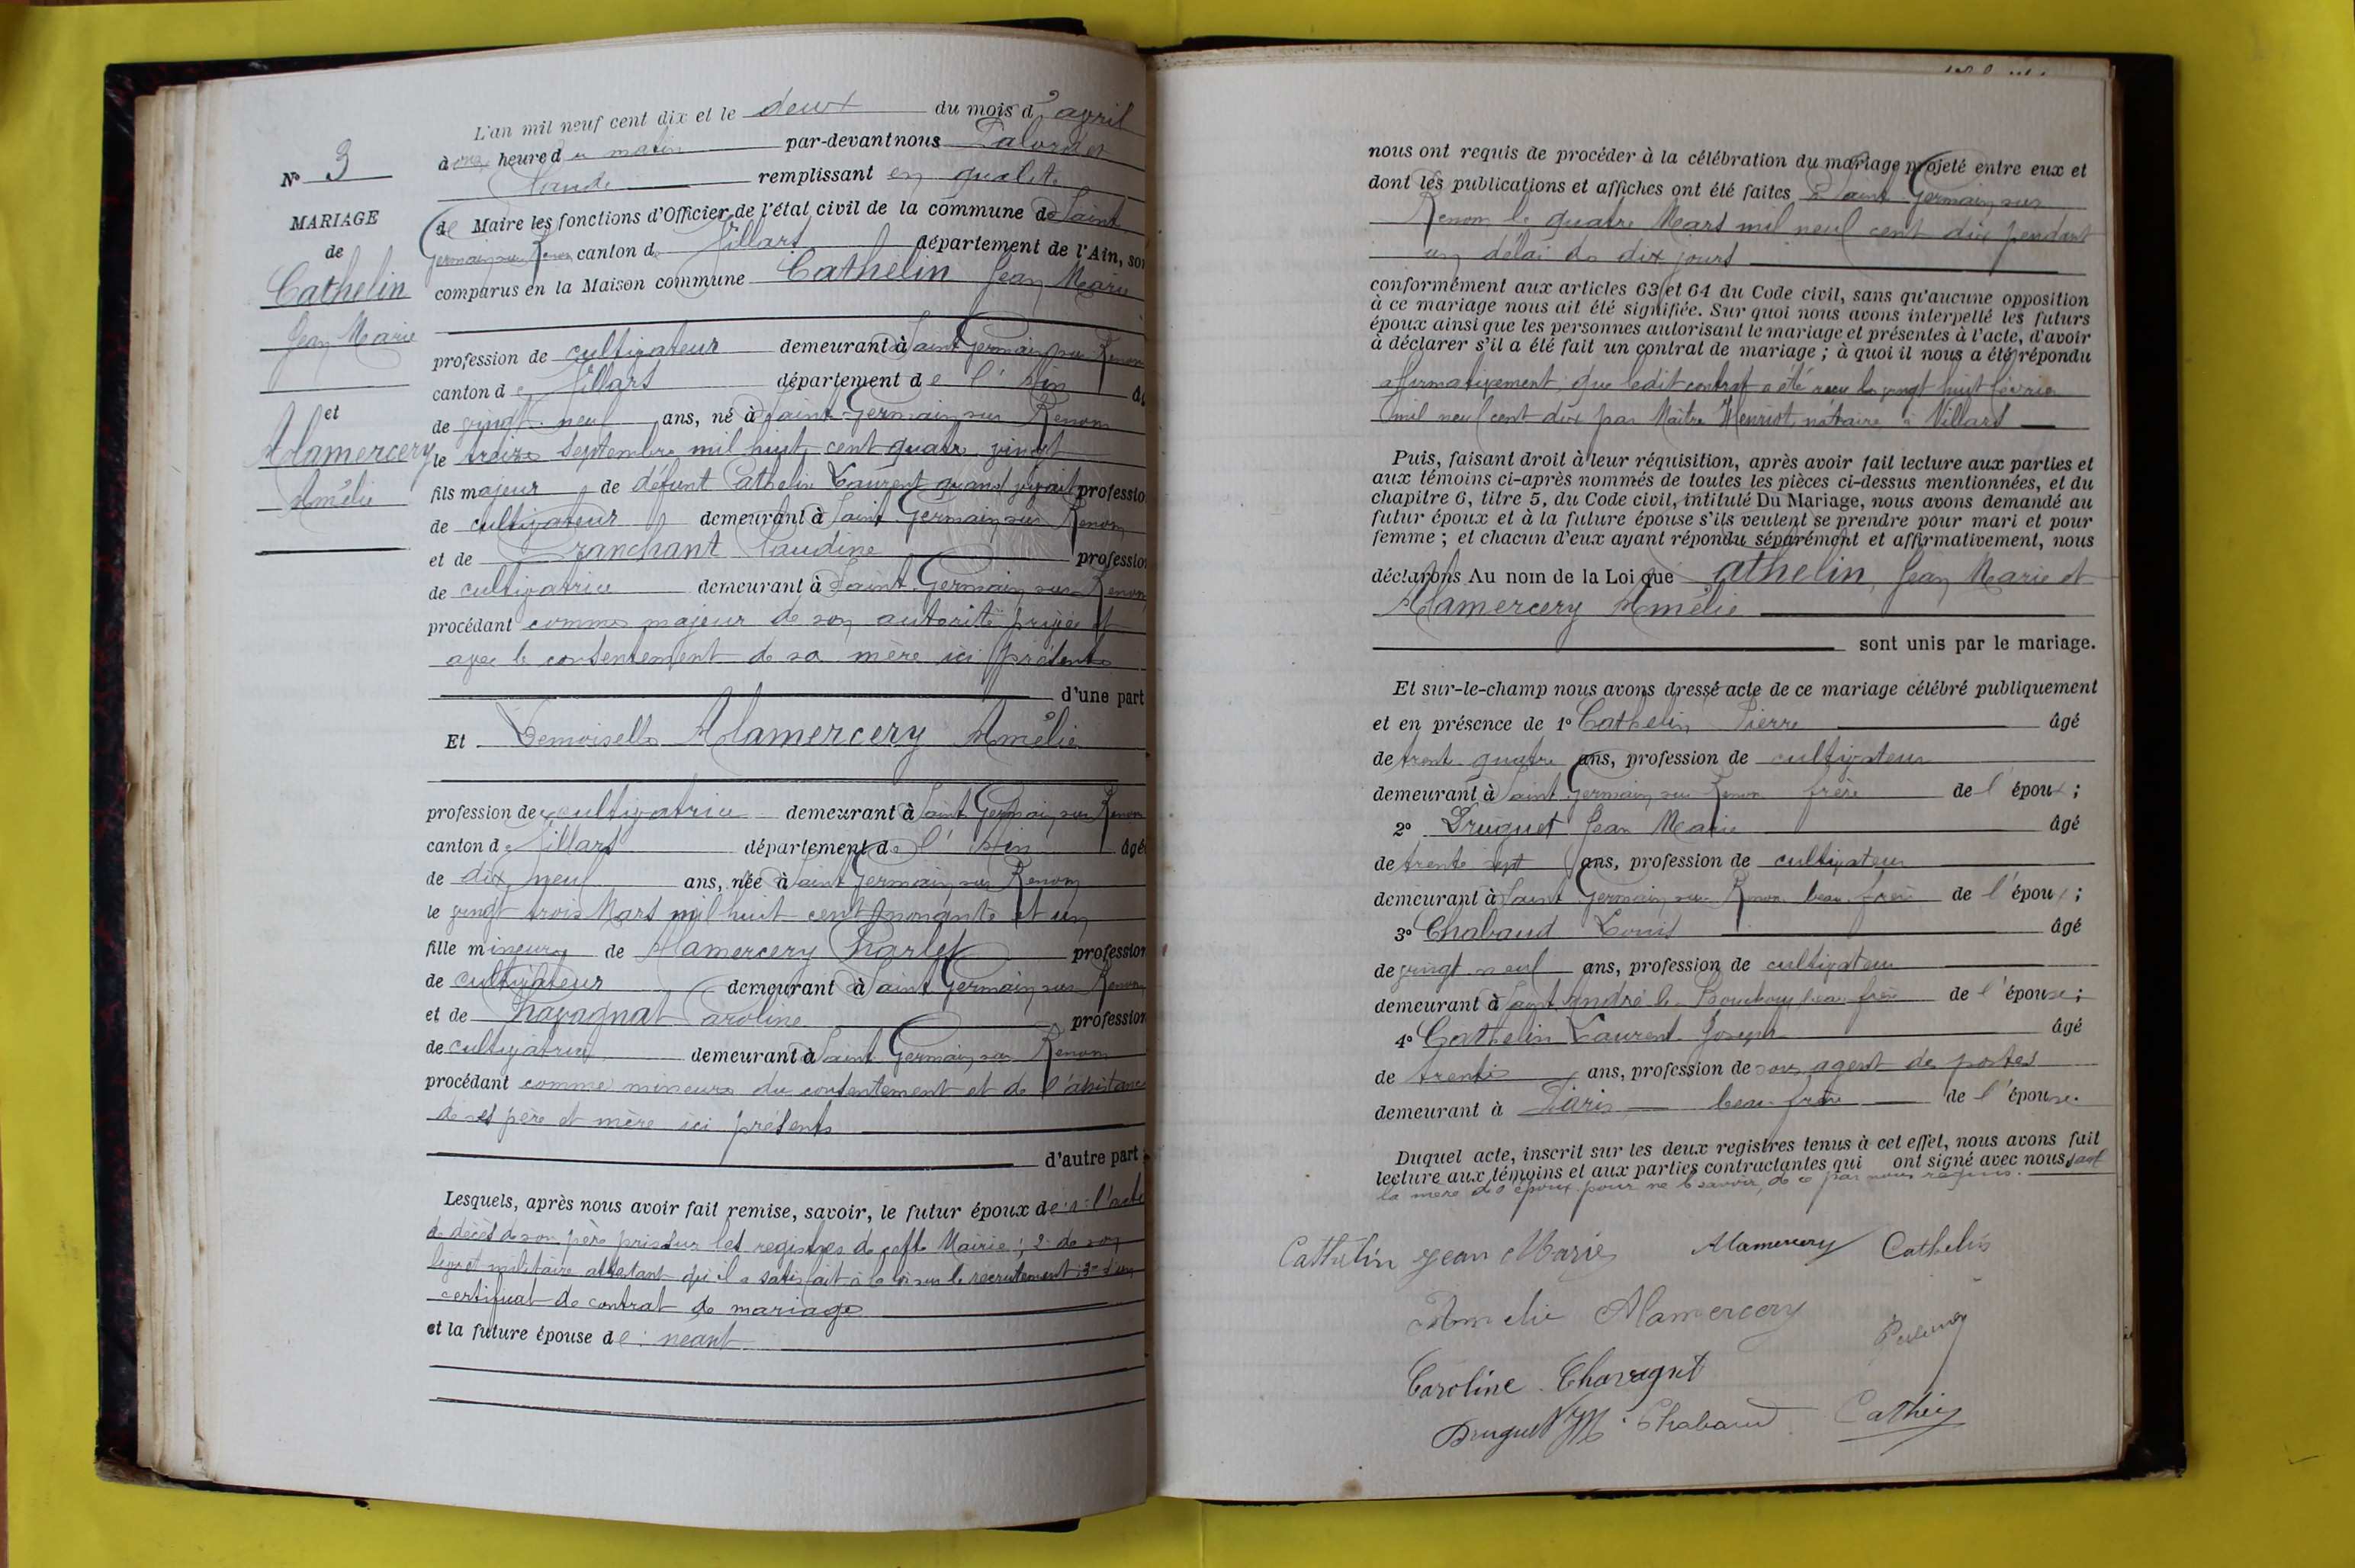 L'an mil neuf cent dix et le deux du mois d'avril
à onze heure du matin par-devant nous
Claude remplissant en qualité
N° 3
MARIAGE
de
Cathelin
Jean Marie
et
Alamercery
Amélie
de Maire les fonctions d'Officier de l'état civil de la commune de Saint
Germain sur Renon canton de Villars département de l'Ain, son
comparus en la Maison commune Cathelin Jean Marie
profession de cultivateur demeurant à Saint Germain sur Renon
canton de Villars département de l'Ain âg
de vingt-neuf ans, né à Saint Germain sur Renon
le treize septembre mil huit cent quatre vingt
fils majeur de défunt Cathelin Laurent quand vivait professio
de cultivateur demeurant à Saint Germain sur Renon
et de Tranchant Claudine profession
de cultivatrice demeurant à Saint Germain sur Renon
procédant comme majeur de son autorité privée et
avec le consentement de sa mère ici présente
d'une part
Et Demoiselle Alamercery Amélie
profession de cultivatrice demeurant à Saint Germain sur Renon
canton de Villars département de l'Ain âgé
de dix neuf ans, née à Saint Germain sur Renon
le vingt trois Mars mil huit cent nonante et un
fille mineure de Alamercery Charles profession
de cultivateur demeurant à Saint Germain sur Renon
et de Chavagnat Caroline profession
de cultivatrice demeurant à Saint Germain sur Renon
procédant comme mineure du consentement et de l'assistance
de ses père et mère ici présents
d'autre part;
Lesquels, après nous avoir fait remise, savoir, le futur époux de: 1° l'acte
de décès de son père pris sur les registres de cette Mairie; 2° de son
livret militaire attestant qu'il a satisfait à la loi sur le recrutement; 3° d'un
certificat de contrat de mariage
et la future épouse de: néant
nous ont requis de procéder à la célébration du mariage projeté entre eux et
dont les publications et affiches ont été faites à Saint Germain sur
Renon le quatre Mars mil neuf cent dix pendant
un délai de dix jours
conformément aux articles 63 et 64 du Code civil, sans qu'aucune opposition
à ce mariage nous ait été signifiée. Sur quoi nous avons interpellé les futurs
époux ainsi que les personnes autorisant le mariage et présentes à l'acte, d'avoir
à déclarer s'il a été fait un contrat de mariage; à quoi il nous a été répondu
affirmativement, que ledit contrat a été reçu le vingt huit février
mil neuf cent dix par Maître Henriot, notaire à Villars
Puis, faisant droit à leur réquisition, après avoir fait lecture aux parties et
aux témoins ci-après nommés de toutes les pièces ci-dessus mentionnées, et du
chapitre 6, titre 5, du Code civil, intitulé Du Mariage, nous avons demandé au
futur époux et à la future épouse s'ils veulent se prendre pour mari et pour
femme; et chacun d'eux ayant répondu séparément et affirmativement, nous
déclarons Au nom de la Loi que Cathelin, Jean Marie et
Alamercery Amélie
sont unis par le mariage.
Et sur-le-champ nous avons dressé acte de ce mariage célébré publiquement
et en présence de 1° Cathelin Pierre âgé
de trente-quatre ans, profession de cultivateur
demeurant à Saint Germain sur Renon frère de l'époux;
2° Druguet Jean Marie âgé
de trente sept ans, profession de cultivateur
demeurant à Saint Germain sur Renon beau-frère de l'époux;
3° Chabaud Louis âgé
de vingt-neuf ans, profession de cultivateur
demeurant à Saint André le Bouchoux, beau-frère de l'épouse;
4° Cathelin Laurent Joseph âgé
de trente ans, profession de sous agent des postes
demeurant à Paris beau-frère de l'épouse.
Duquel acte, inscrit sur les deux registres tenus à cet effet, nous avons fait
lecture aux témoins et aux parties contractantes qui ont signé avec nous, sauf
la mère de l'époux pour ne le savoir, de ce par nous requis.
Cathelin Jean Marie Alamercery Cathelin
Amelie Alamercery
Caroline Chavagnt
Druguet JM Chabaud Cathelin